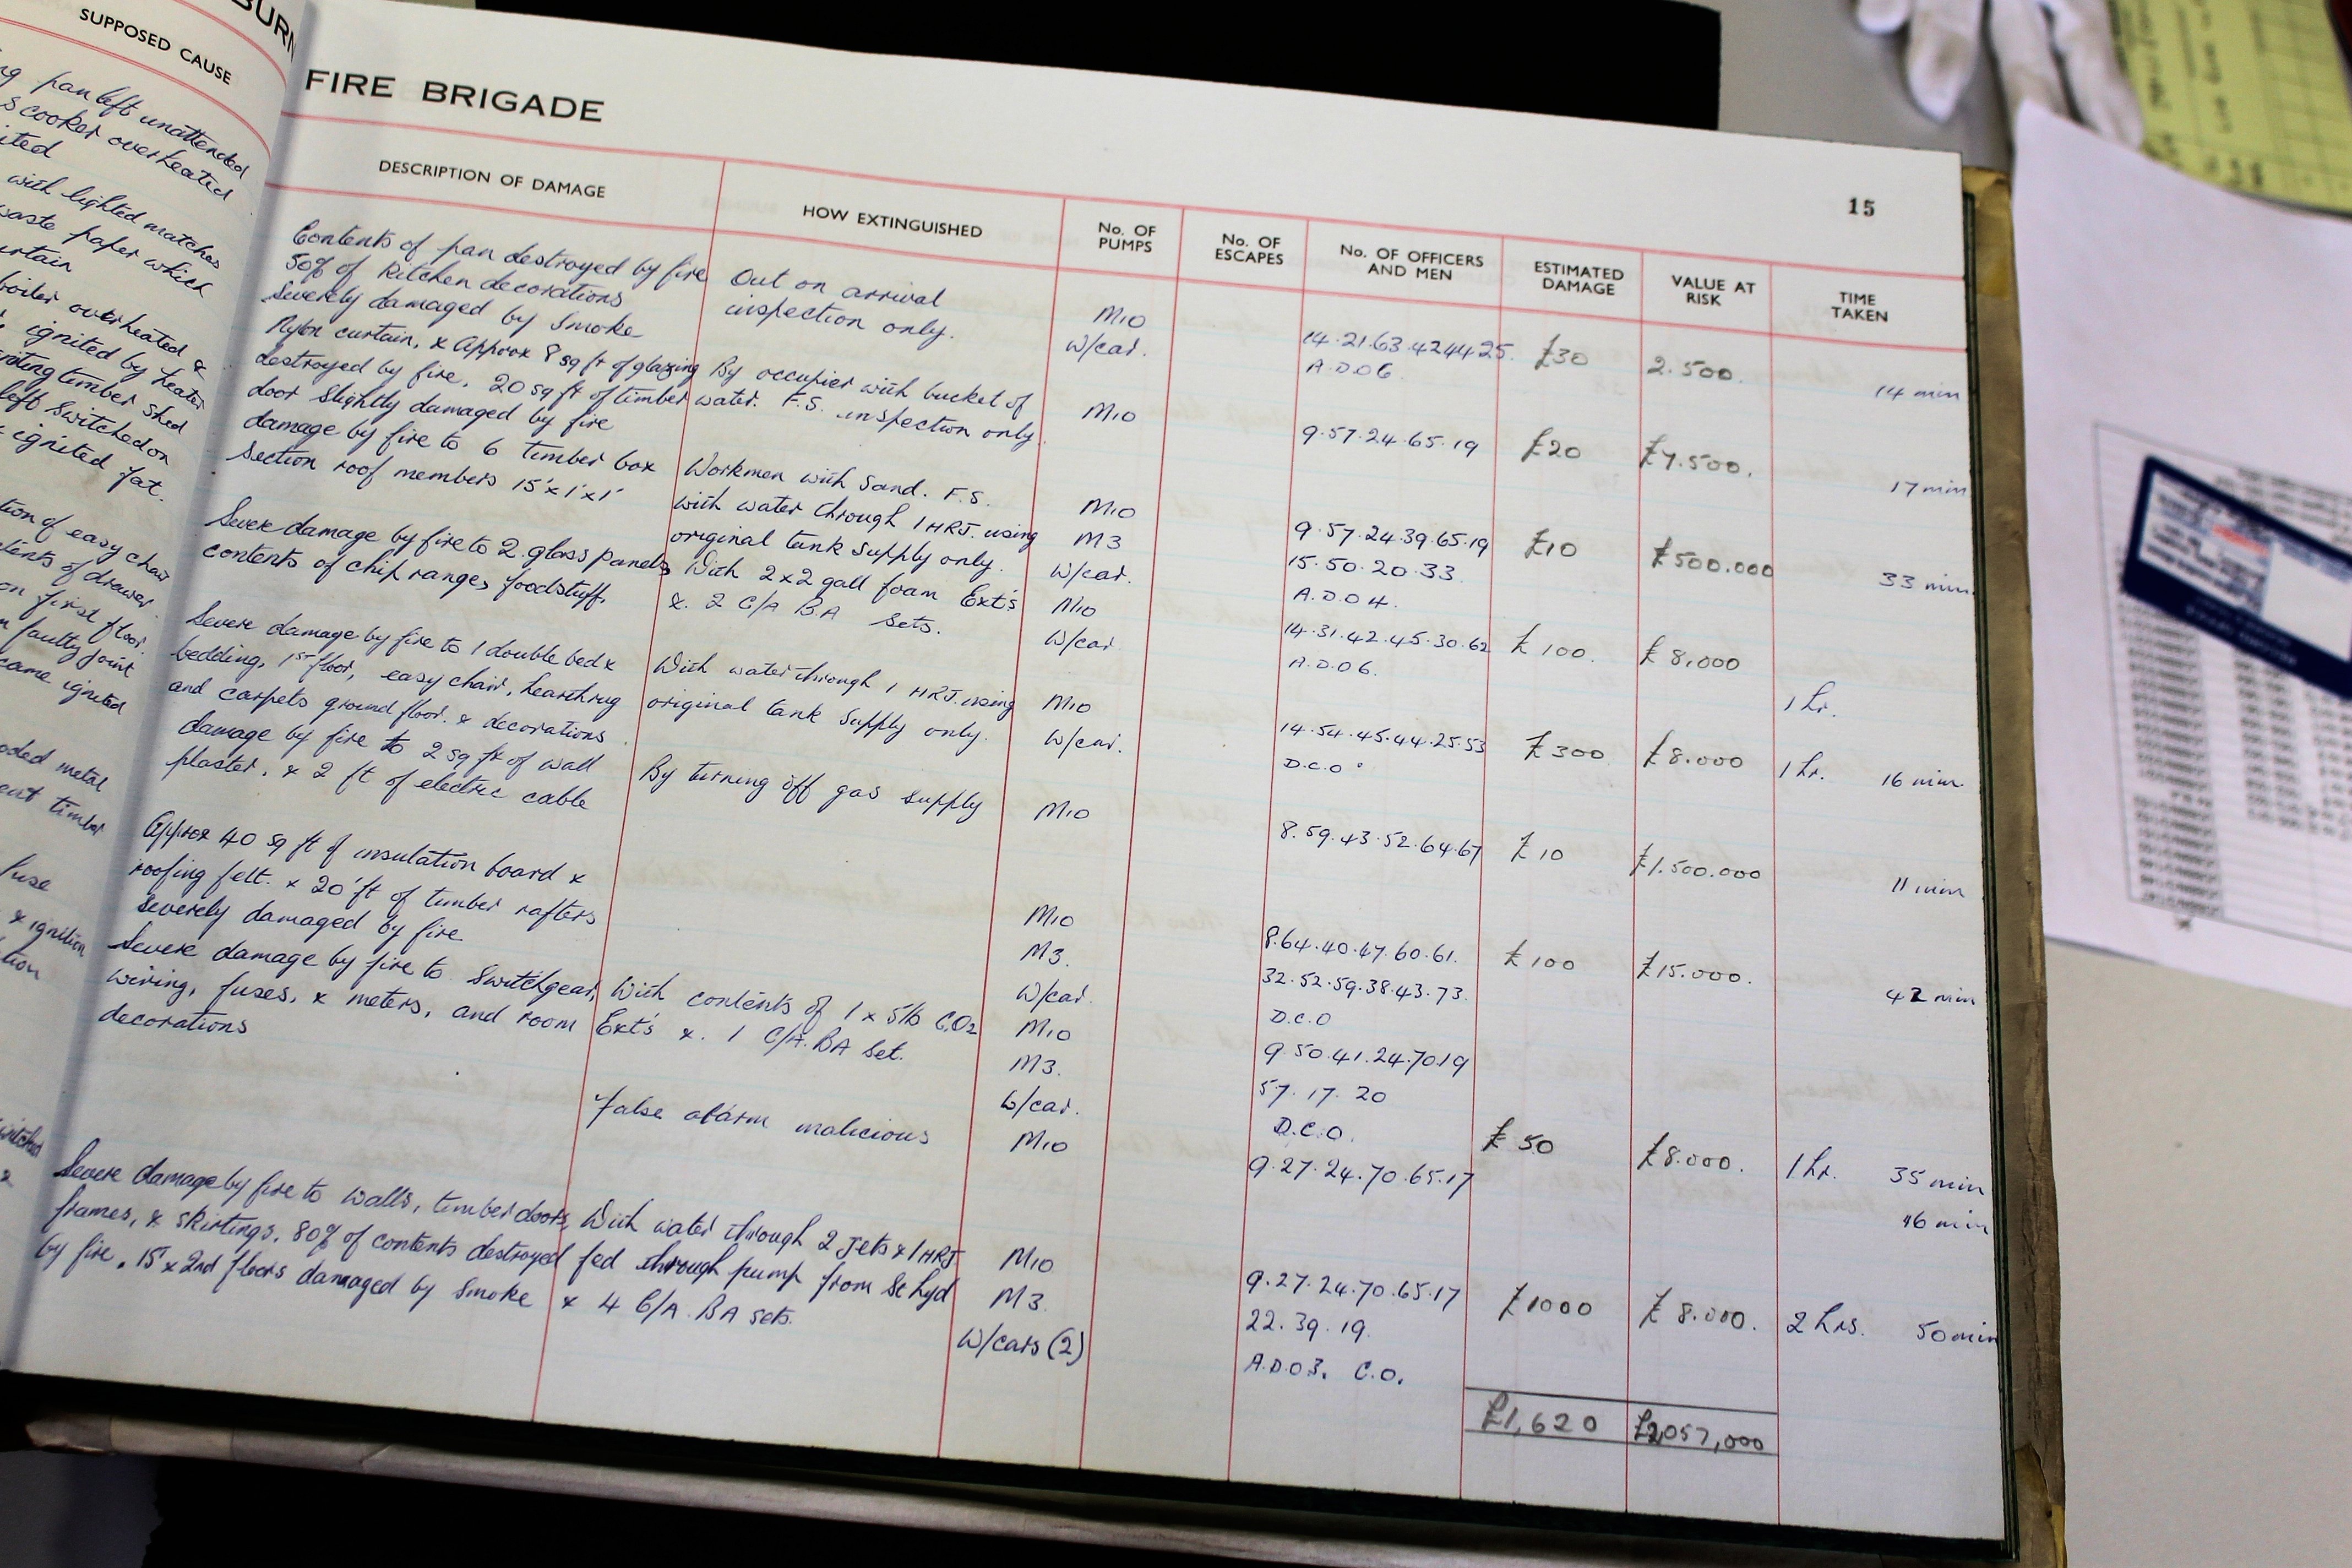 BURN
SUPPOSED CAUSE
pan left unattended
cooker overheated
with lighted matches
waste paper which
boiler overheated &
ignited by heater
timber shed
left switched on
ignited fat.
of easy chair
of drawer
on first floor.
faulty joint
came ignited
metal
timber
fuse
& ignition
FIRE BRIGADE
15
DESCRIPTION OF DAMAGE
HOW EXTINGUISHED
No. OF PUMPS
No. OF ESCAPES
No. OF OFFICERS AND MEN
ESTIMATED DAMAGE
VALUE AT RISK
TIME TAKEN
Contents of pan destroyed by fire
50% of Kitchen decorations
Severely damaged by smoke
Out on arrival
inspection only.
M10
W/car.
14.21.63.42.44.25.
A.D.O6.
£30
2.500.
14 min
Nylon curtain, & Approx 8 sq ft of glazing
destroyed by fire. 20 sq ft of timber
door slightly damaged by fire
By occupier with bucket of
water. F.S. inspection only.
M10
9.57.24.65.19
£20
£7.500.
17 min
damage by fire to 6 timber box
Section roof members 15'x1'x1'
Workmen with Sand. F.S.
with water through 1 HRJ. using
original tank supply only.
M10
M3
W/car.
9.57.24.39.65.19
15.50.20.33.
A.D.O4.
£10
£500.000
33 min
Severe damage by fire to 2 glass panels
contents of chip range, foodstuff.
With 2x2 gall foam Ext's
& 2 C/A B.A Sets.
M10
W/car
14.31.42.45.30.62
A.D.O6.
£100.
£8,000
1 hr.
Severe damage by fire to 1 double bed &
bedding, 1st floor, easy chair, hearthrug
and carpets ground floor. & decorations
With water through 1 HRJ. using
original tank supply only.
M10
W/car.
14.54.45.44.25.53
D.C.O
£300
£8.000
1 hr. 16 min
damage by fire to 2 sq ft of wall
plaster, & 2 ft of electric cable
By turning off gas supply
M10
8.59.43.52.64.67
£10
£1.500.000
11 min
Approx 40 sq ft of insulation board &
roofing felt. & 20' ft of timber rafters
severely damaged by fire
M10
M3.
W/car.
8.64.40.47.60.61.
32.52.59.38.43.73.
D.C.O
£100
£15.000.
42 min
Severe damage by fire to Switchgear,
wiring, fuses, & meters, and room
decorations
With contents of 1 x 5lb C.O2
Ext's & 1 C/A. BA Set.
M10
M3.
W/car.
9.50.41.24.70.19
57.17.20
D.C.O.
£50
£8.000.
1 hr. 35 min
False alarm malicious
M10
9.27.24.70.65.17
16 min
Severe damage by fire to walls, timber doors,
frames, & skirtings. 80% of contents destroyed
by fire. 1st & 2nd floors damaged by smoke
With water through 2 Jets & 1 HRJ.
fed through pump from St hyd
& 4 C/A. BA sets.
M10
M3.
W/cars (2)
9.27.24.70.65.17
22.39.19.
A.D.O3. C.O.
£1000
£8.000.
2 hrs. 50 min
£1,620
£2057,000